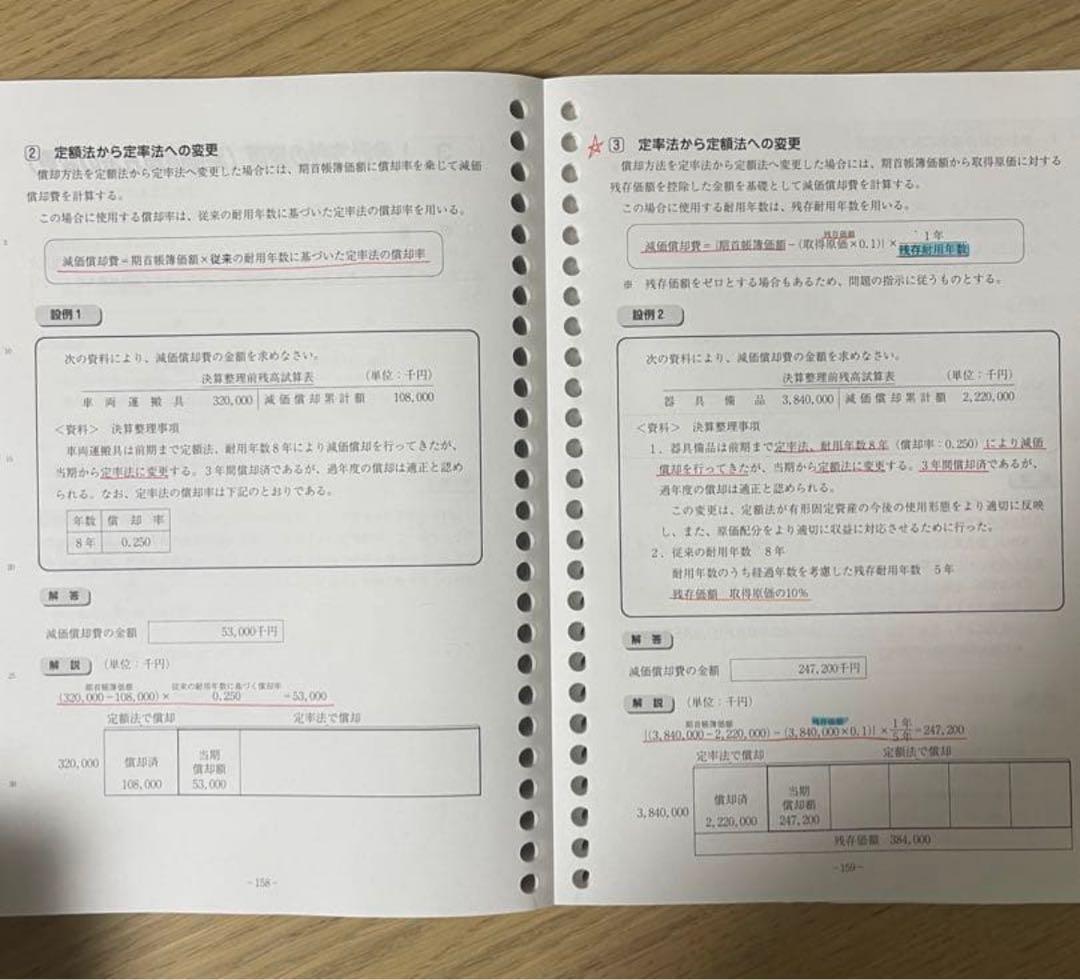 ② 定額法から定率法への変更
償却方法を定額法から定率法へ変更した場合には、期首帳簿価額に償却率を乗じて減価
償却費を計算する。
この場合に使用する償却率は、従来の耐用年数に基づいた定率法の償却率を用いる。
減価償却費=期首帳簿価額×従来の耐用年数に基づいた定率法の償却率
設例1
次の資料により、減価償却費の金額を求めなさい。
決算整理前残高試算表 (単位:千円)
車両運搬具 320,000 減価償却累計額 108,000
<資料> 決算整理事項
車両運搬具は前期まで定額法、耐用年数8年により減価償却を行ってきたが、
当期から定率法に変更する。3年間償却済であるが、過年度の償却は適正と認め
られる。なお、定率法の償却率は下記のとおりである。
年数 償却率
8年 0.250
解答
減価償却費の金額 53,000千円
解説 (単位:千円)
期首帳簿価額 従来の耐用年数に基づく償却率
(320,000-108,000)× 0.250 =53,000
定額法で償却 定率法で償却
320,000
償却済
108,000
当期
償却額
53,000
-158-
③ 定率法から定額法への変更
償却方法を定率法から定額法へ変更した場合には、期首帳簿価額から取得原価に対する
残存価額を控除した金額を基礎として減価償却費を計算する。
この場合に使用する耐用年数は、残存耐用年数を用いる。
残存価額
減価償却費={期首帳簿価額-(取得原価×0.1)}× 1年
残存耐用年数
※ 残存価額をゼロとする場合もあるため、問題の指示に従うものとする。
設例2
次の資料により、減価償却費の金額を求めなさい。
決算整理前残高試算表 (単位:千円)
器具備品 3,840,000 減価償却累計額 2,220,000
<資料> 決算整理事項
1.器具備品は前期まで定率法、耐用年数8年(償却率:0.250)により減価
償却を行ってきたが、当期から定額法に変更する。3年間償却済であるが、
過年度の償却は適正と認められる。
この変更は、定額法が有形固定資産の今後の使用形態をより適切に反映
し、また、原価配分をより適切に収益に対応させるために行った。
2.従来の耐用年数 8年
耐用年数のうち経過年数を考慮した残存耐用年数 5年
残存価額 取得原価の10%
解答
減価償却費の金額 247,200千円
解説 (単位:千円)
期首帳簿価額 残存価額
{(3,840,000-2,220,000)-(3,840,000×0.1)}× 1年
5年 =247,200
定率法で償却 定額法で償却
3,840,000
償却済
2,220,000
当期
償却額
247,200
残存価額 384,000
-159-